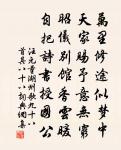 萬里修途似夢中
天家賜予意無窮
昭儀別館香雲暖
自把詩書授國公
汪元量湖州歌九十八
首其八十八 詞典網集